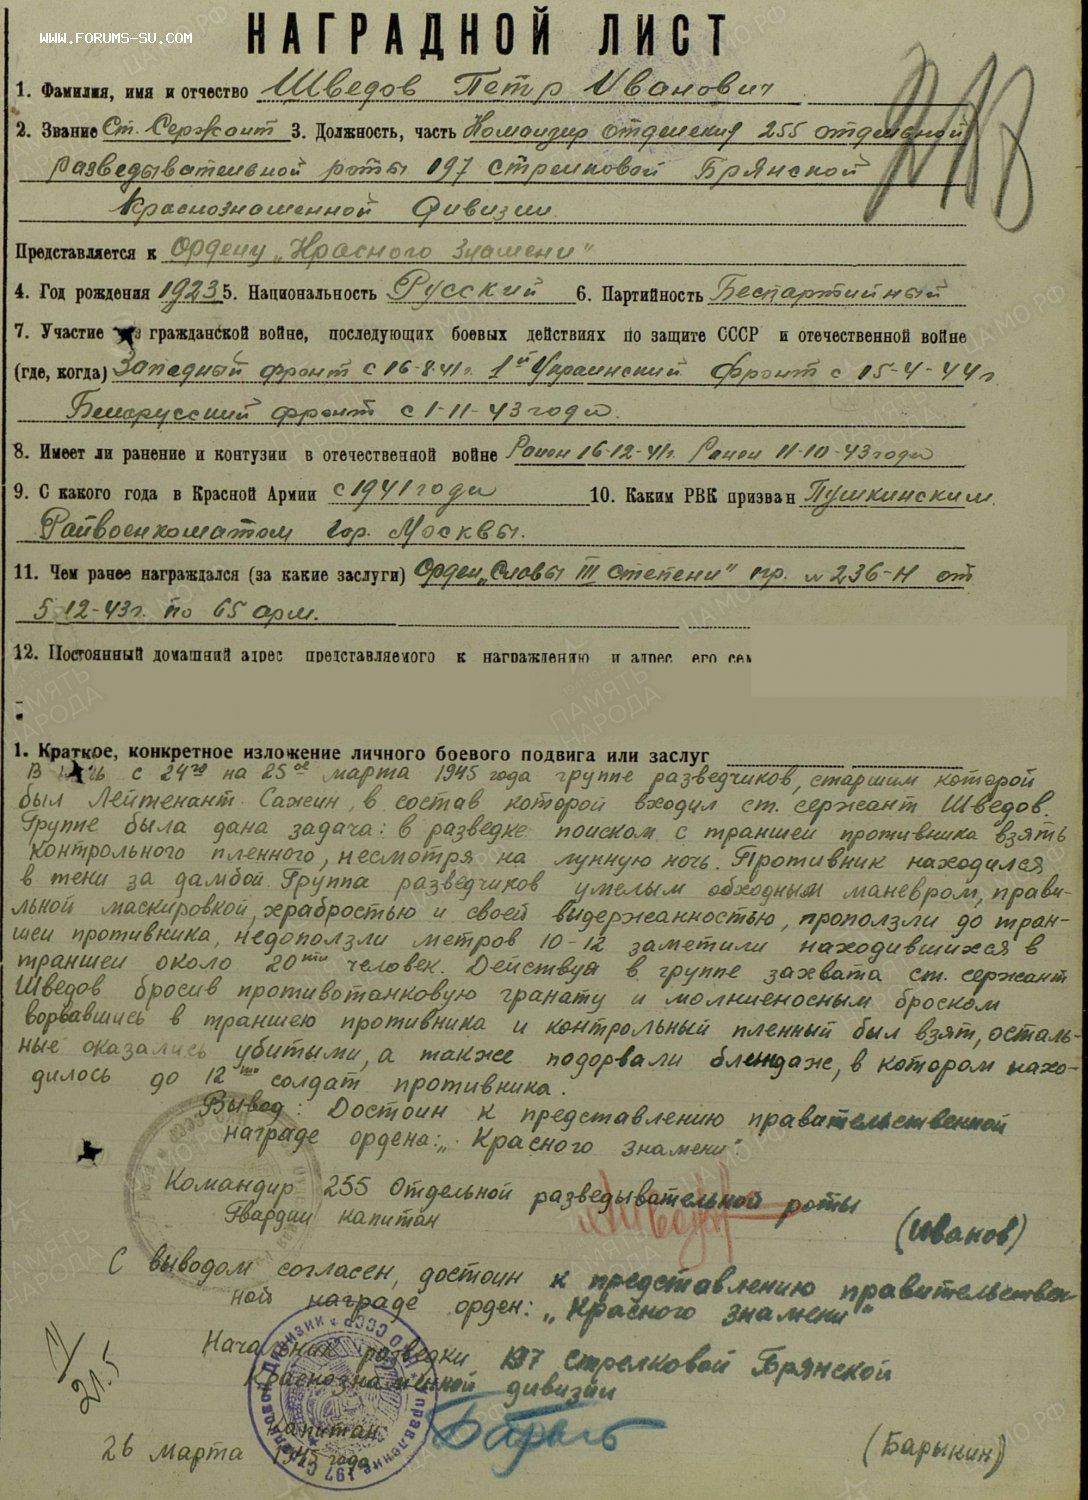 WWW.FORUMS-SU.COM
НАГРАДНОЙ ЛИСТ
1. Фамилия, имя и отчество Шведов Петр Иванович
2. Звание Ст. Сержант 3. Должность, часть Командир отделения 255 отдельной
разведывательной роты 197 стрелковой Брянской
Краснознаменной дивизии.
Представляется к Ордену „Красного Знамени"
4. Год рождения 1923 5. Национальность Русский 6. Партийность Беспартийный
7. Участие в гражданской войне, последующих боевых действиях по защите СССР и отечественной войне
(где, когда) Западный фронт с 16-8-41г. 1ый Украинский фронт с 15-4-44г
Белорусский фронт с 1-11-43 года.
8. Имеет ли ранение и контузии в отечественной войне Ранен 16-12-41г. Ранен 11-10-43 года
9. С какого года в Красной Армии с 1941 года 10. Каким РВК призван Пушкинским
Райвоенкоматом гор. Москвы.
11. Чем ранее награждался (за какие заслуги) Орден „Славы III степени" пр. № 236-Н от
5-12-43г. по 65 арм.
12. Постоянный домашний адрес представляемого к награждению и адрес его сем
1. Краткое, конкретное изложение личного боевого подвига или заслуг
В ночь с 24го на 25ое марта 1945 года группе разведчиков, старшим которой
был Лейтенант Сажин, в состав которой входил ст. сержант Шведов.
Группе была дана задача: в разведке поиском с траншеи противника взять
контрольного пленного, несмотря на лунную ночь. Противник находился
в тени за дамбой. Группа разведчиков умелым обходным маневром, прави-
льной маскировкой, храбростью и своей выдержанностью, проползли до тран-
шеи противника, недоползли метров 10-12 заметили находившихся в
траншеи около 20ти человек. Действуя в группе захвата ст. сержант
Шведов бросив противотанковую гранату и молниеносным броском
ворвавшись в траншею противника и контрольный пленный был взят, осталь-
ные оказались убитыми, а также подорвали блендаж, в котором нахо-
дилось до 12ти солдат противника.
Вывод: Достоин к представлению правательственной
награде ордена: „Красного знамени".
Командир 255 Отдельной разведывательной роты
Гвардии капитан (Иванов)
С выводом согласен, достоин к представлению правительствен-
ной награде орден: „Красного знамени"
Начальник разведки 197 Стрелковой Брянской
Краснознаменной дивизии
капитан
26 марта 1945 года (Барыкин)
21.5